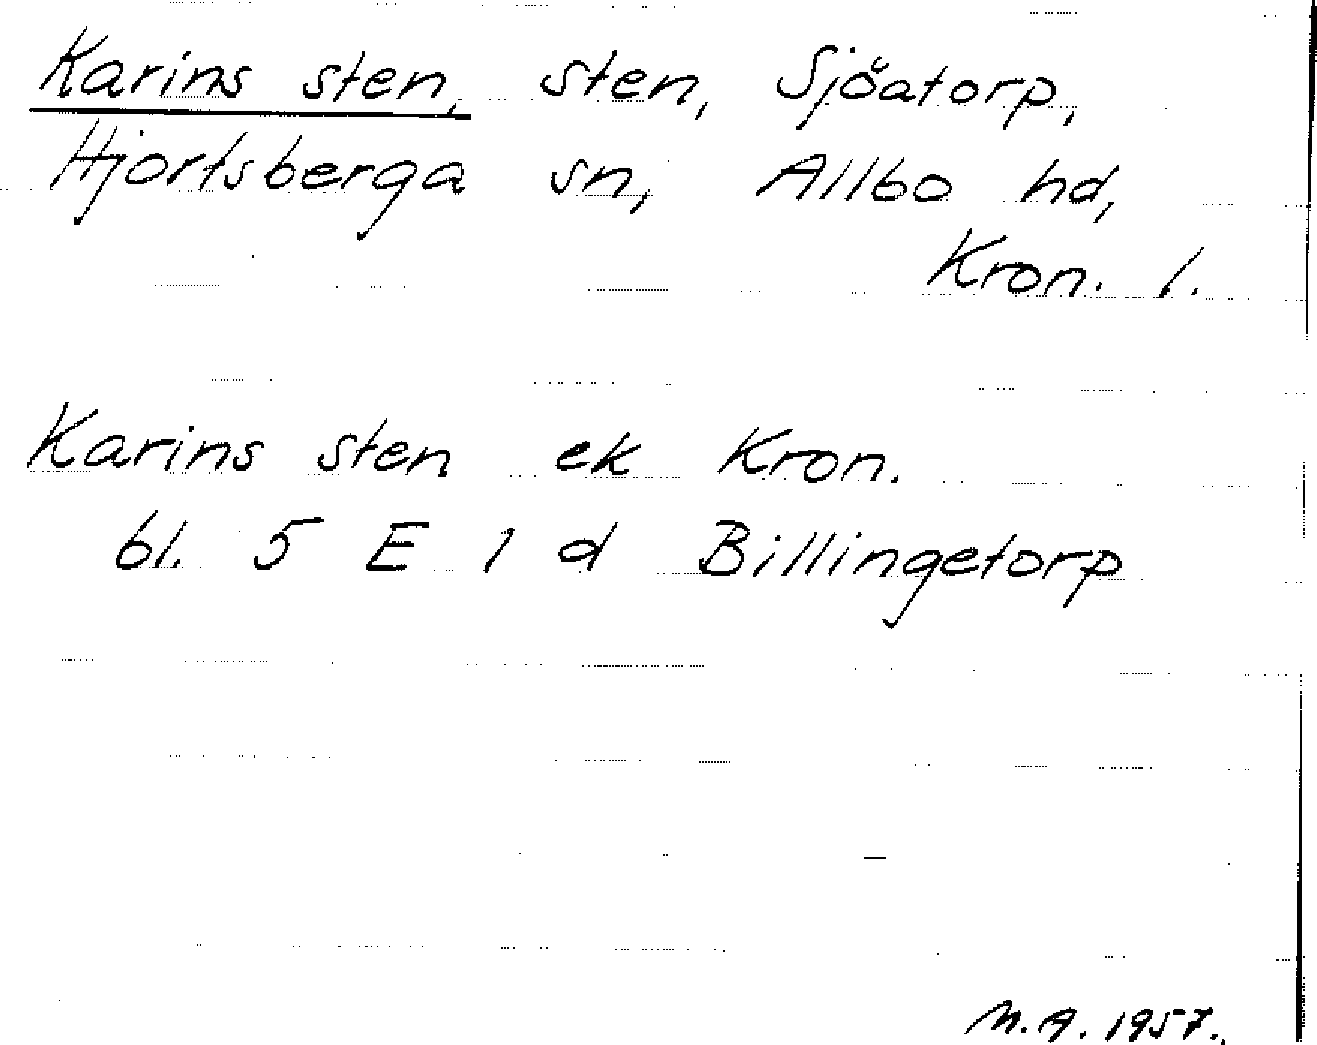 Karins sten, sten, Sjöatorp,
Hjortsberga sn, Allbo hd,
Kron. l.
Karins sten ek Kron.
bl. 5 E 1 d Billingetorp
M.A. 1957.